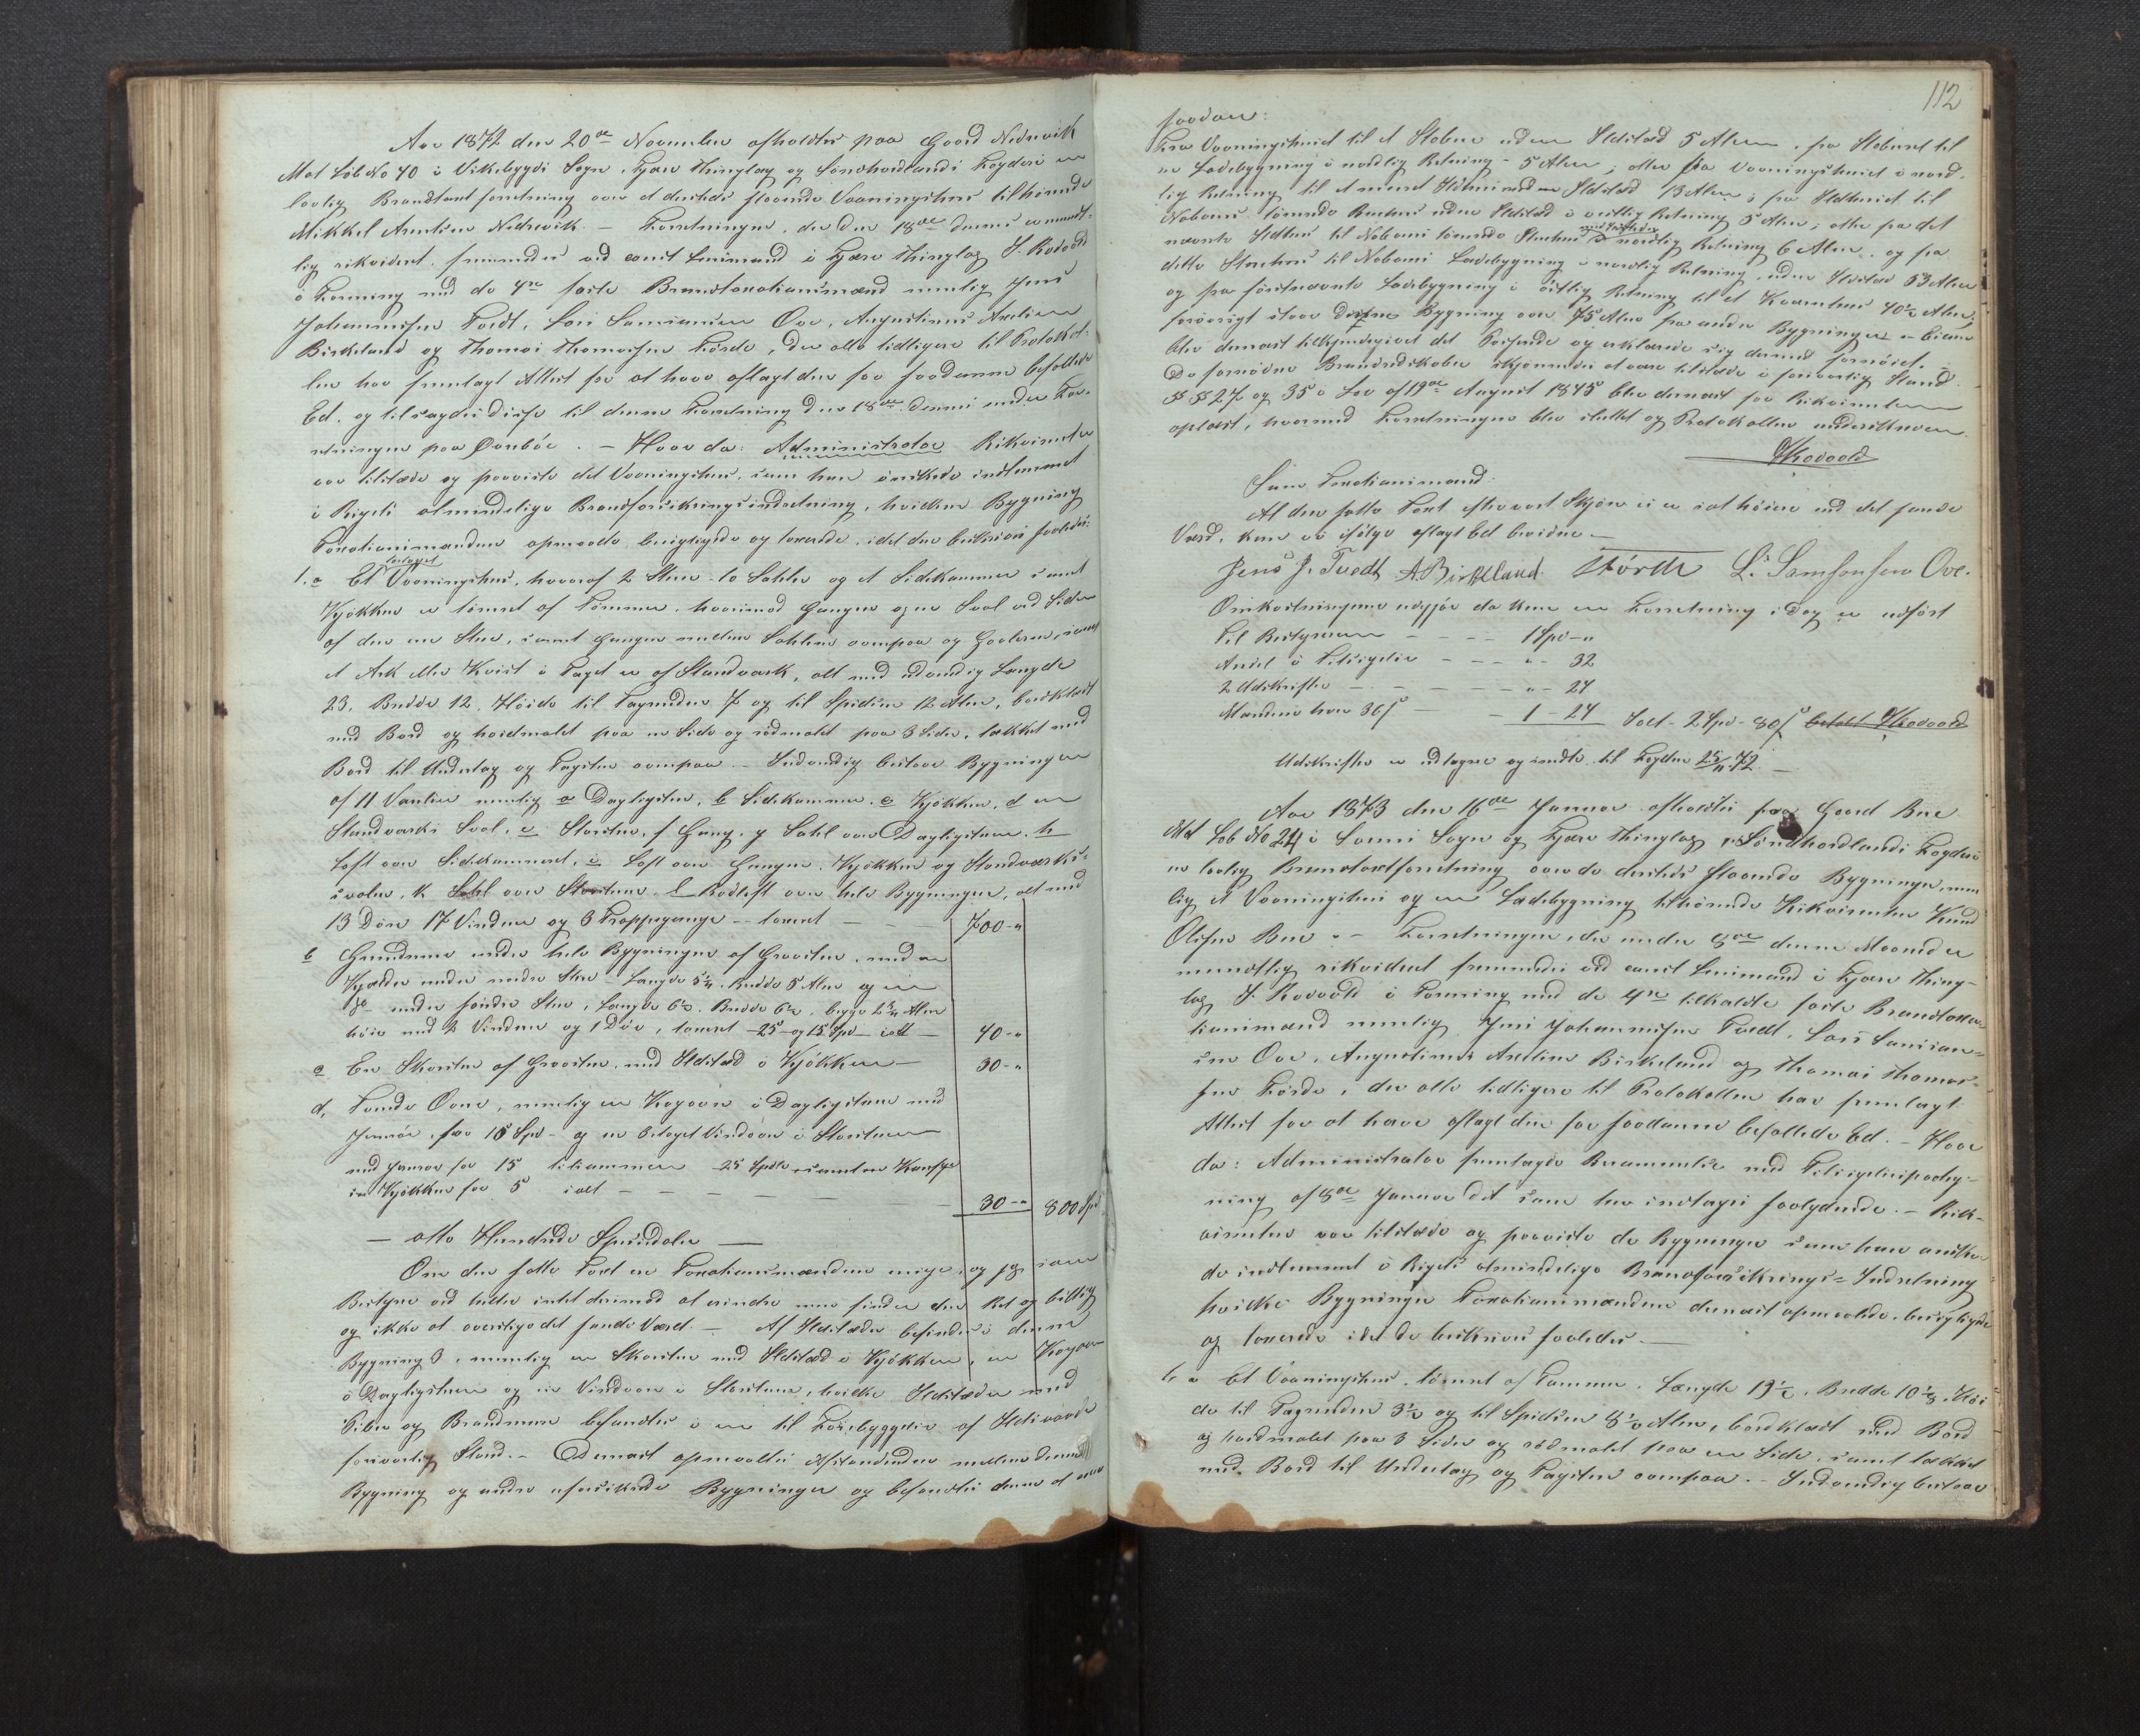 Aar 1872 den 20de November afholdtes paa Gaard Nedrevik
Mat Løb No 40 i Vikebygds Sogn, Fjære Thinglag og Søndhordlands Fogderi en
lovlig Brandtaxtforretning over et dersteds staaende Vaaningshus tilhørende
Mikkel Arentsen Nedrevik. – Forretningen, der den 18de dennes er mundt-
lig rekvireret, fremmedes ved const Lensmand i Fjære Thinglag J. Kodvold
i Forening med de 4re faste Brandtaxationsmænd nemlig Jens
Johannesen Tvedt, Lars Samsonsen Ove, Augustinus Axelsen
Birkeland og Thomas Thomassen Førde, der alle tidligere til Protokol-
len har fremlagt Attest for at have aflagt den for saadanne befalede
Ed. og tilsagdes disse til denne Forretning den 18de dennes under For-
retningen paa . – Hvor da: Administrator Rekvirenten
var tilstæde og paaviste det Vaaningshus, som han ønskede indlemmet
i Rigets almindelige Brandforsikringsindretning, hvilken Bygning
Taxationsmændene opmaalte besigtigede og taxerede, idet den beskrives saaledes:
1. a Et toetages Vaaningshus, hvoraf 2 Stuer to Sahler og et Sidekammer samt
Kjøkken er tømret af Tømmer, hvorimod Gangen og en Sval ved Siden
af den ene Stue, samt Gangen mellem Sahlene ovenpaa og Gavlerne, samt
et Ark eller Kvist i Taget er af Standværk, alt med udvendig Længde
23, Bredde 12, Høide til Tagrenden 7 og til Spidsen 12 Alen, bordklædt
med Bord og hvidmalet paa en Side og rødmalet paa 3 Sider, tækket med
Bord til Underlag og Tagsten ovenpaa. – Indvendig bestaar Bygningen
af 11 Værelser nemlig a Dagligstue, b Sidekammer, c Kjøkken, d en
Standværks Sval, e Storstue, f Gang, g Sahl over Dagligstuen, h
Loft over Sidekammeret, i Loft over Gangen, Kjøkken og Standværks-
svalen, k Sahl over Storstuen l Rødloft over hele Bygningen, alt med
13 Døre 17 Vinduer og 3 Trappegange – taxeret – 700 – "
b Grundmur under hele Bygningen af Graasten, med en
Kjælder under nedre Stue – Længde 5¼, Bredde 5 Alen og en
do under søndre Stue, Længde 6½, Bredde 6½, begge 2¾ Alen
høie med 2 Vinduer og 1 Dør, taxeret 25 og 15 Spd – ialt – 40 – "
c En Skorsten af Graasten, med Ildsted i Kjøkken – 30 – "
d, Tvende Ovne, nemlig en Kogeovn i Dagligstuen med
Jernrør, for 10 Spd – og en 3etages Vindovn i Storstuen
med Jernrør for 15 tilsammen 25 Spdlr samt en
i Kjøkken for 5 ialt – – – – – 30 – " 800 Spd
– otte Hundrede Speciedaler –
Om den satte Taxt er Taxationsmændene enige, og jeg som
Bestyrer ved heller intet derimod at erindre men finder den Ret og billig
og ikke at overstige det sande Værd. – Af Ildsteder befindes i denne
Bygning 3, nemlig en Skorsten med Ildsted i Kjøkken, en Kogeovn
i Dagligstuen og en Vindovn i Storstuen, hvilke Ildsteder med
Piber og Brandmure befandtes i en til Forebyggelse af Ildsvaade
forsvarlig Stand. – Dernæst opmaaltes Afstandene mellem denne
Bygning og andre uforsikrede Bygninger og befandtes denne at være
112
saadan:
Fra Vaaningshuset til et Stabur uden Ildsted 5 Alen, fra Staburet til
en Ladebygning i nordlig Retning – 5 Alen; atter fra Vaaningshuset i nord-
lig Retning til et med Ildsted 13 Alen; fra Ildhuset til
Naboens tømrede uden Ildsted i vestlig Retning 5 Alen, atter fra det
nævnte Ildhus til Naboens tømrede i nordlig Retning 6 Alen, og fra
dette til Naboens Ladebygning i nordlig Retning, uden Ildsted 53 Alen
og fra førstnævnte Ladebygning i østlig Retning til et Kværnhus 40½ Alen,
forøvrigt staar disse Bygning over 75 Alen fra andre Bygninger.
blev dernæst tilkjendegivet det Forestaaende og erklærede sig dermed fornøiet. –
De fornødne Brandredskaber skjønnedes at være tilstæde i forsvarlig Stand.
§ § 27 og 35 i Lov af 19de August 1845 blev dernæst for Rekvirenten
oplæst, hvormed Forretningen blev sluttet og Protokollen underskreven.
JKodvold
Som Taxationsmænd:
At den satte Taxt efter vort Skjøn ei er sat høiere end det sande
Værd, kan vi ifølge aflagt Ed bevidne. –
Jens J. Tvedt A. Birkeland TFørde L. Samsonsen Ove.
Omkostningerne udgjør da kun en Forretning i Dag er udført
Til Bestyreren – – – – 1 Spd – "
Andel i Tilsigelse – – – " – 32
2 Udskrifter – – – – – " – 24
Mændene hver 36 s – – 1 – 24 Ialt – 2 Spd – 80 s betalt JKodvold
Udskrifter er udtagne og sendte til Fogden 25/11 72. –
Aar 1873 den 16de Januar afholdtes paa Gaard Bue
Mat Løb No 24 i Sogn og Fjære Thinglag, Søndhordlands Fogderi
en lovlig Brandtaxtforretning over de dersteds staaende Bygninger, nem-
lig et Vaaningshus og en Ladebygning tilhørende Rekvirenten Knud
Olsen Bue. – Forretningen, der under 8de denne Maaned er
mundtlig rekvireret fremmedes ved const Lensmand i Fjære Thing-
lag J. Kodvold i Forening med de 4re tilkaldte faste Brandtaxa-
tionsmænd nemlig Jens Johannesen Tvedt, Lars Samson-
sen Ove, Augustinus Axelsen Birkeland og Thomas Thomas-
sen Førde, der alle tidligere til Protokollen har fremlagt
Attest for at have aflagt den for saadanne befalede Ed. – Hvor
da: Administrator fremlagde Berammelse med Tilsigelsespaateg-
ning af 8de Januar det som her indtages saalydende. – Rek-
virenten var tilstæde og paaviste de Bygninger som han ønske-
de indlemmet i Rigets almindelige Brandforsikrings-Indretning
hvilke Bygninger Taxationsmændene dernæst opmaalede, besigtigede
og taxerede idet de beskrives saaledes. –
1. a Et Vaaningshus, tømret af Tømmer. Længde 19½, Bredde 10½, Høi-
de til Tagrenden 3½ og til Spidsen 8½ Alen, bordklædt med Bord
og hvidmalet paa 3 Sider og rødmalet paa en Side, samt tækket
med Bord til Underlag og Tagsten ovenpaa. – Indvendig bestaar